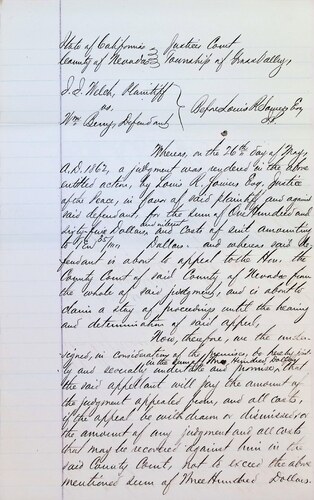 State of California } Justice Court
County of Nevada } Township of Grass Valley,
Plaintiff
vs.
Wm Berry, Defendant } Before Louis Esq
J.P.
Whereas, on the 26th day of May,
A.D. 1862, a judgment was rendered in the above
entitled action, by Louis Esq. Justice
of the Peace, in favor of said plaintiff and against
said defendant, for the sum of One Hundred and
and interest
sixty five Dollars, and costs of suit amounting
to Ten Dollars. and whereas said de-
fendant is about to appeal to the Hon. the
County Court of said County of Nevada from
the whole of said judgment, and is about to
claim a stay of proceedings until the hearing
and determination of said appeal,
Now, therefore, we the under-
signed, in consideration of the premises, do hereby joint-
in the sum of Three Hundred Dollars
ly and severally undertake and promise, that
the said appellant will pay the amount of
the judgment appealed from, and all costs,
if the appeal be withdrawn or dismissed or
the amount of any judgment and all costs
that may be recovered against him in the
said County Court, not to exceed the above
mentioned sum of Three Hundred Dollars.